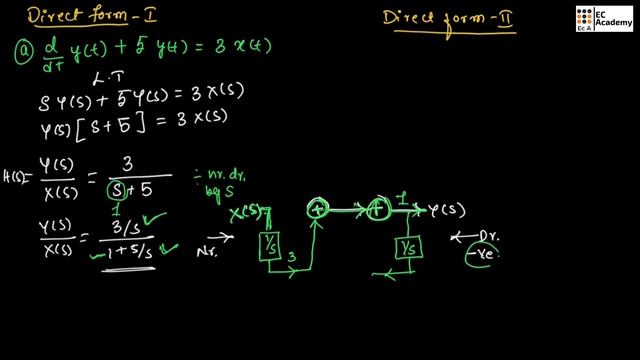 Direct form - I
Direct form - II
EC Academy
EC A
ⓐ d/dt y(t) + 5 y(t) = 3 x(t)
L.T
S Y(S) + 5 Y(S) = 3 X(S)
Y(S) [ S + 5 ] = 3 X(S)
H(S) = Y(S)/X(S) = 3/(S + 5)
÷ nr. dr.
by S
1
Y(S)/X(S) = (3/S)/(1 + 5/S)
Nr.
X(S)
1/S
3
+
+
1
Y(S)
1/S
Dr.
-ve